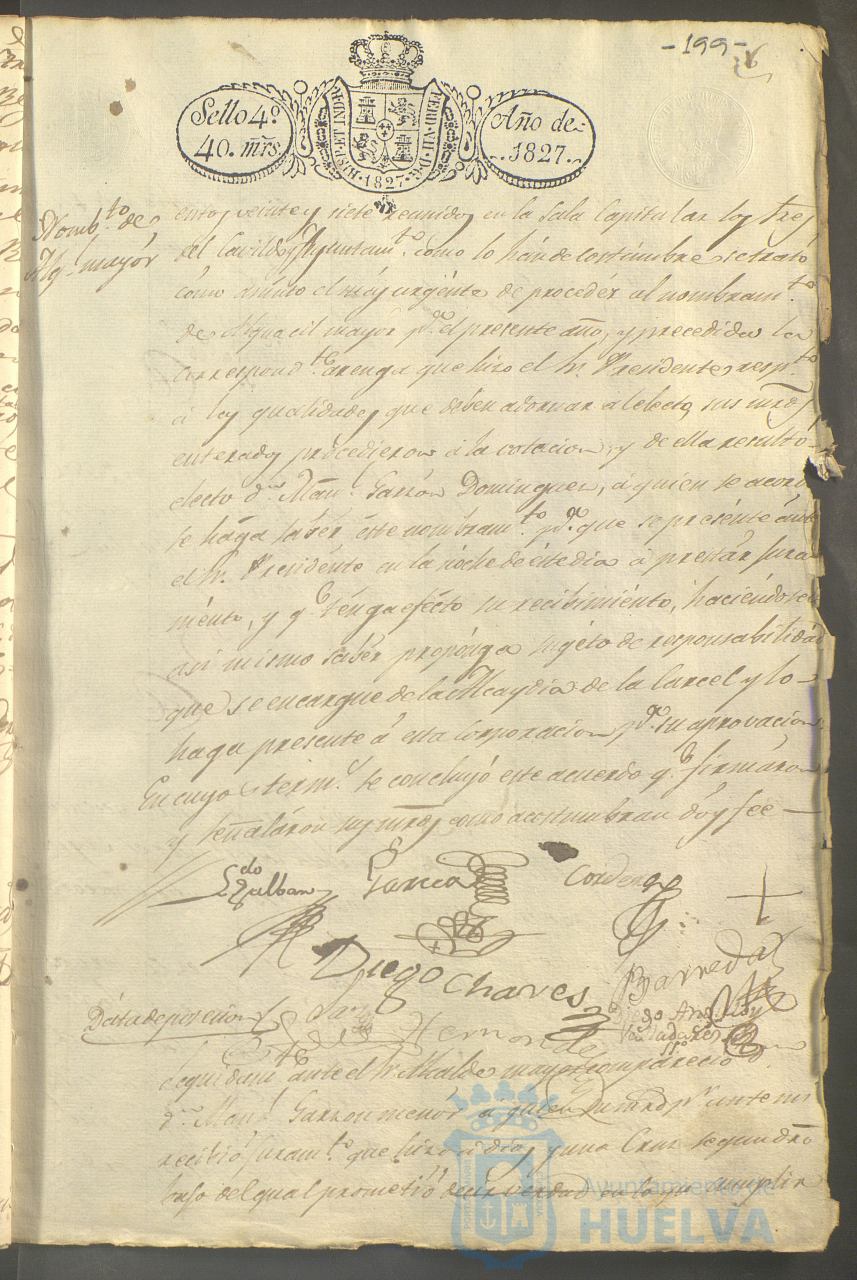 -199-
Sello 4º
40. mrs.
HISP. ET IND. R
FERD. VII. D. G.
.1827.
Año de
1827.
Nomb.to de
Alg.l mayór
entos veinte y siete reunidos en la Sala Capitular los Sres
del Cavildo y Ayuntam.to como lo hán de costúmbre se trató
cómo asúnto el más urgénte de procedér al nombram.to
de Alguacil mayor p.a el presente año, y precedida la
correspond.te arenga que hizo el Sr. Presidente resp.to
a las qualidades que deben adornar al electo, sus mrds
enterados procedieron á la votacion, y de ella resultó
electo d.n Man.l Garzón Dominguez, á quien se acordó
se hága sabér éste nombram.to p.a que se presénte ánte
el Sr. Presidénte en la nóche de éste dia á prestár jura
ménto, y q.e ténga efécto su recibimiénto, haciéndosele
asi mismo sabér propónga sugéto de responsabilidád
que se encargue de la Alcaydia de la Carcel y lo
haga presente á esta Corporacion p.a su aprovacion
En cuyo term.o se concluyó este acuerdo q.e firmáron
y señaláron sus mrds como acostumbran doy fee
L.do Galban
Garcia
Cordero
Diego Chaves
Barreda
Hernande
Dáta de posesion
Seguidam.te ante el Sr. Alcalde mayor compareció
d.n Man.l Garzon menór a quien su mrd p.r ante mi
recibió juram.to que hizo a dios y una Cruz segun dro
baxo del qual prometió decir verdad en lo q.e cumplir
Ayuntamiento de
HUELVA